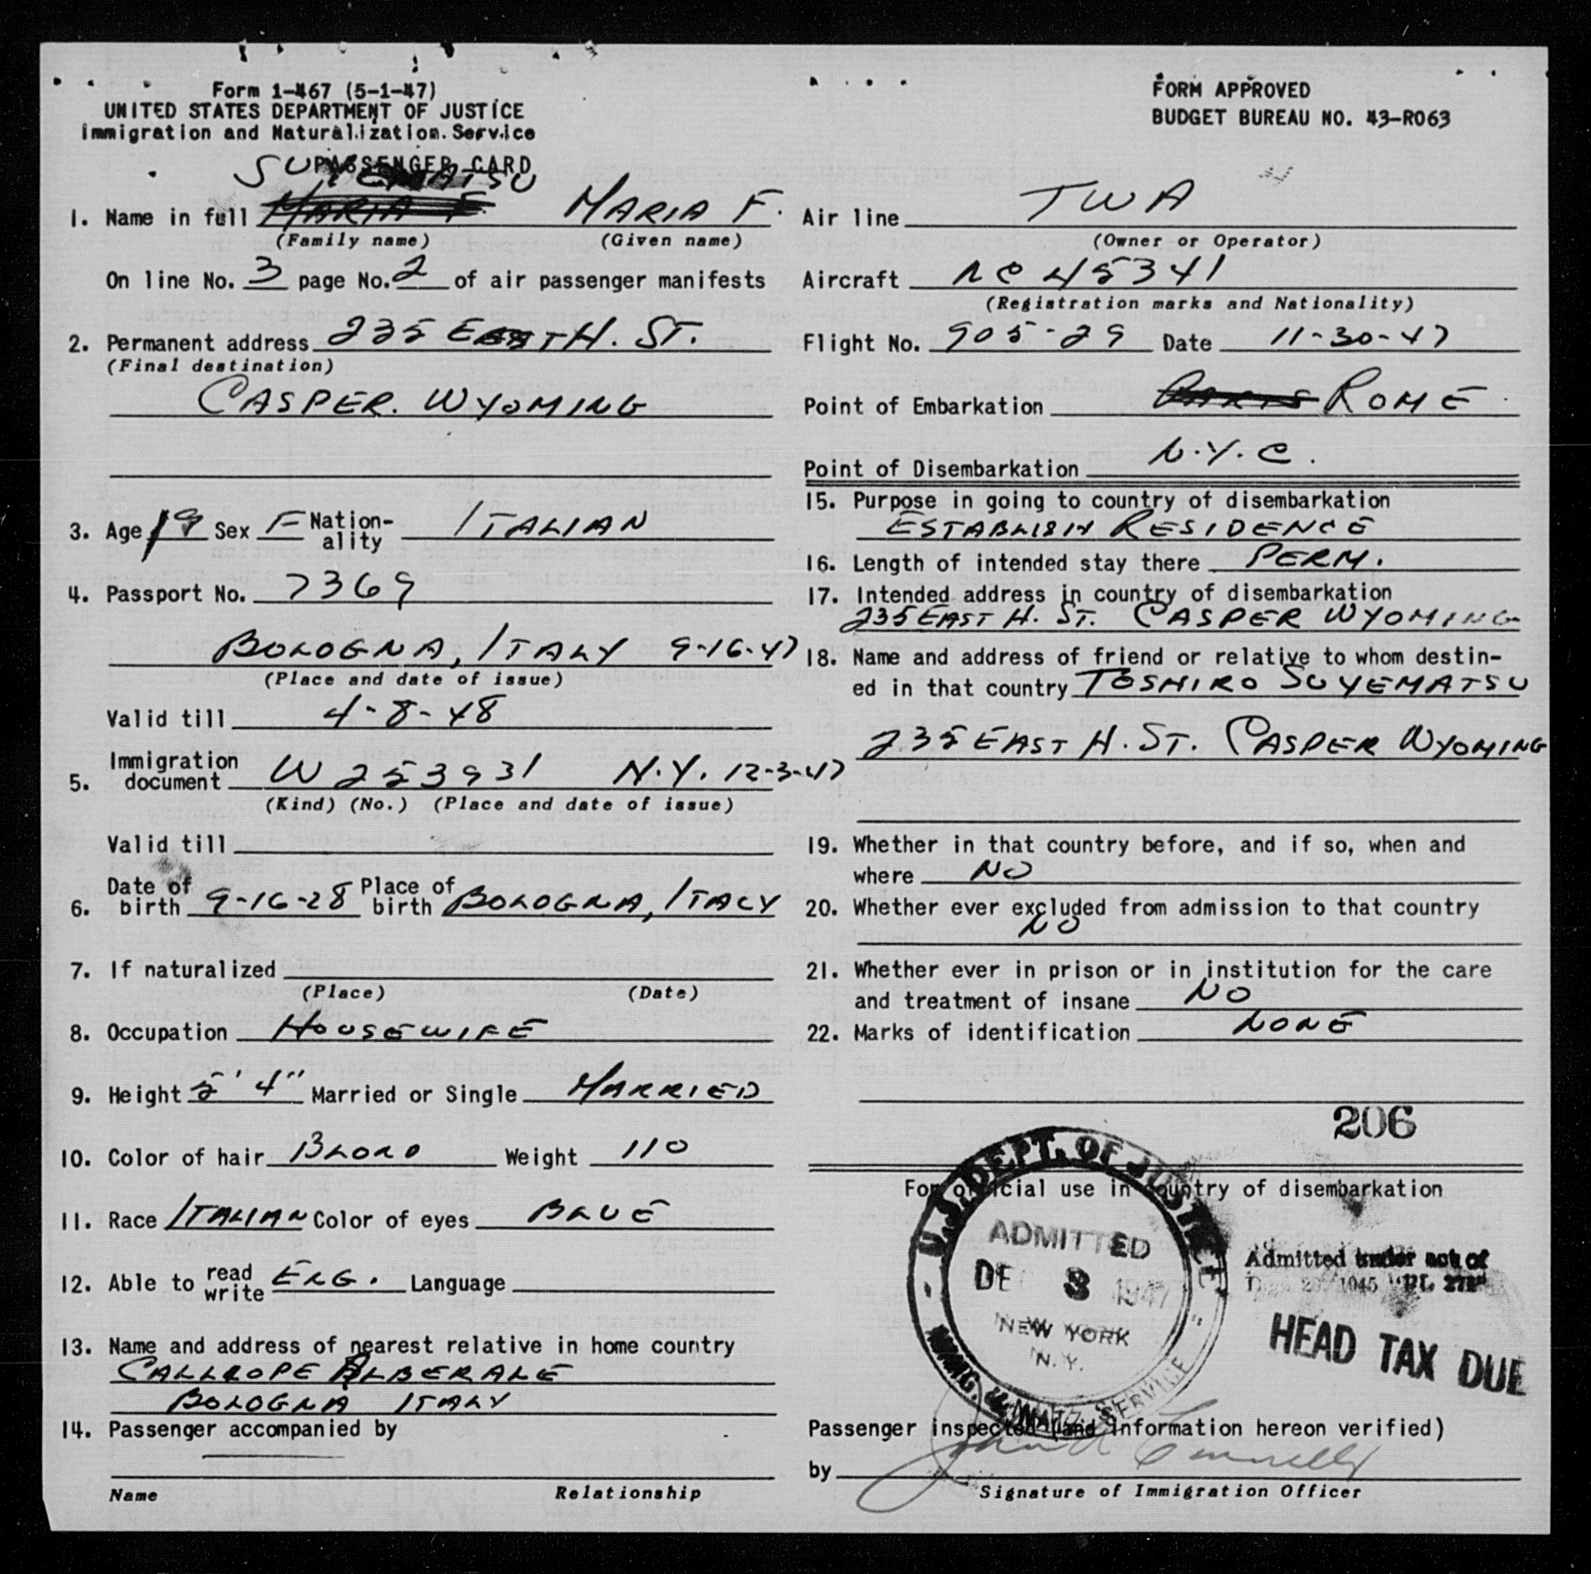 Form 1-467 (5-1-47)
UNITED STATES DEPARTMENT OF JUSTICE
Immigration and Naturalization Service
PASSENGER CARD
FORM APPROVED
BUDGET BUREAU NO. 43-R063
SUYEMATSU
1. Name in full MARIA F. MARIA F.
(Family name) (Given name)
On line No. 3 page No. 2 of air passenger manifests
2. Permanent address 235 EAST H. ST.
(Final destination)
CASPER. WYOMING
3. Age 19 Sex F Nation-ality ITALIAN
4. Passport No. 7369
BOLOGNA, ITALY 9-16-47
(Place and date of issue)
Valid till 4-8-48
5. Immigration document W 253931 N.Y. 12-3-47
(Kind) (No.) (Place and date of issue)
Valid till
6. Date of birth 9-16-28 Place of birth BOLOGNA, ITALY
7. If naturalized
(Place) (Date)
8. Occupation HOUSEWIFE
9. Height 5' 4" Married or Single MARRIED
10. Color of hair BLOND Weight 110
11. Race ITALIAN Color of eyes BLUE
12. Able to read write ENG. Language
13. Name and address of nearest relative in home country
CALLROPE ALBERALE
BOLOGNA ITALY
14. Passenger accompanied by
Name Relationship
Air line TWA
(Owner or Operator)
Aircraft NC 45341
(Registration marks and Nationality)
Flight No. 905-29 Date 11-30-47
Point of Embarkation PARIS ROME
Point of Disembarkation N.Y.C.
15. Purpose in going to country of disembarkation
ESTABLISH RESIDENCE
16. Length of intended stay there PERM.
17. Intended address in country of disembarkation
235 EAST H. ST. CASPER WYOMING
18. Name and address of friend or relative to whom destin-
ed in that country TOSHIRO SUYEMATSU
235 EAST H. ST. CASPER WYOMING
19. Whether in that country before, and if so, when and
where NO
20. Whether ever excluded from admission to that country
NO
21. Whether ever in prison or in institution for the care
and treatment of insane NO
22. Marks of identification NONE
206
For official use in country of disembarkation
U.S. DEPT. OF JUSTICE
ADMITTED
DEC 3 1947
NEW YORK
N.Y.
IMMIG. & NATZ. SERVICE
Admitted under act of
1945 PL 271
HEAD TAX DUE
Passenger inspected (and information hereon verified)
by
Signature of Immigration Officer